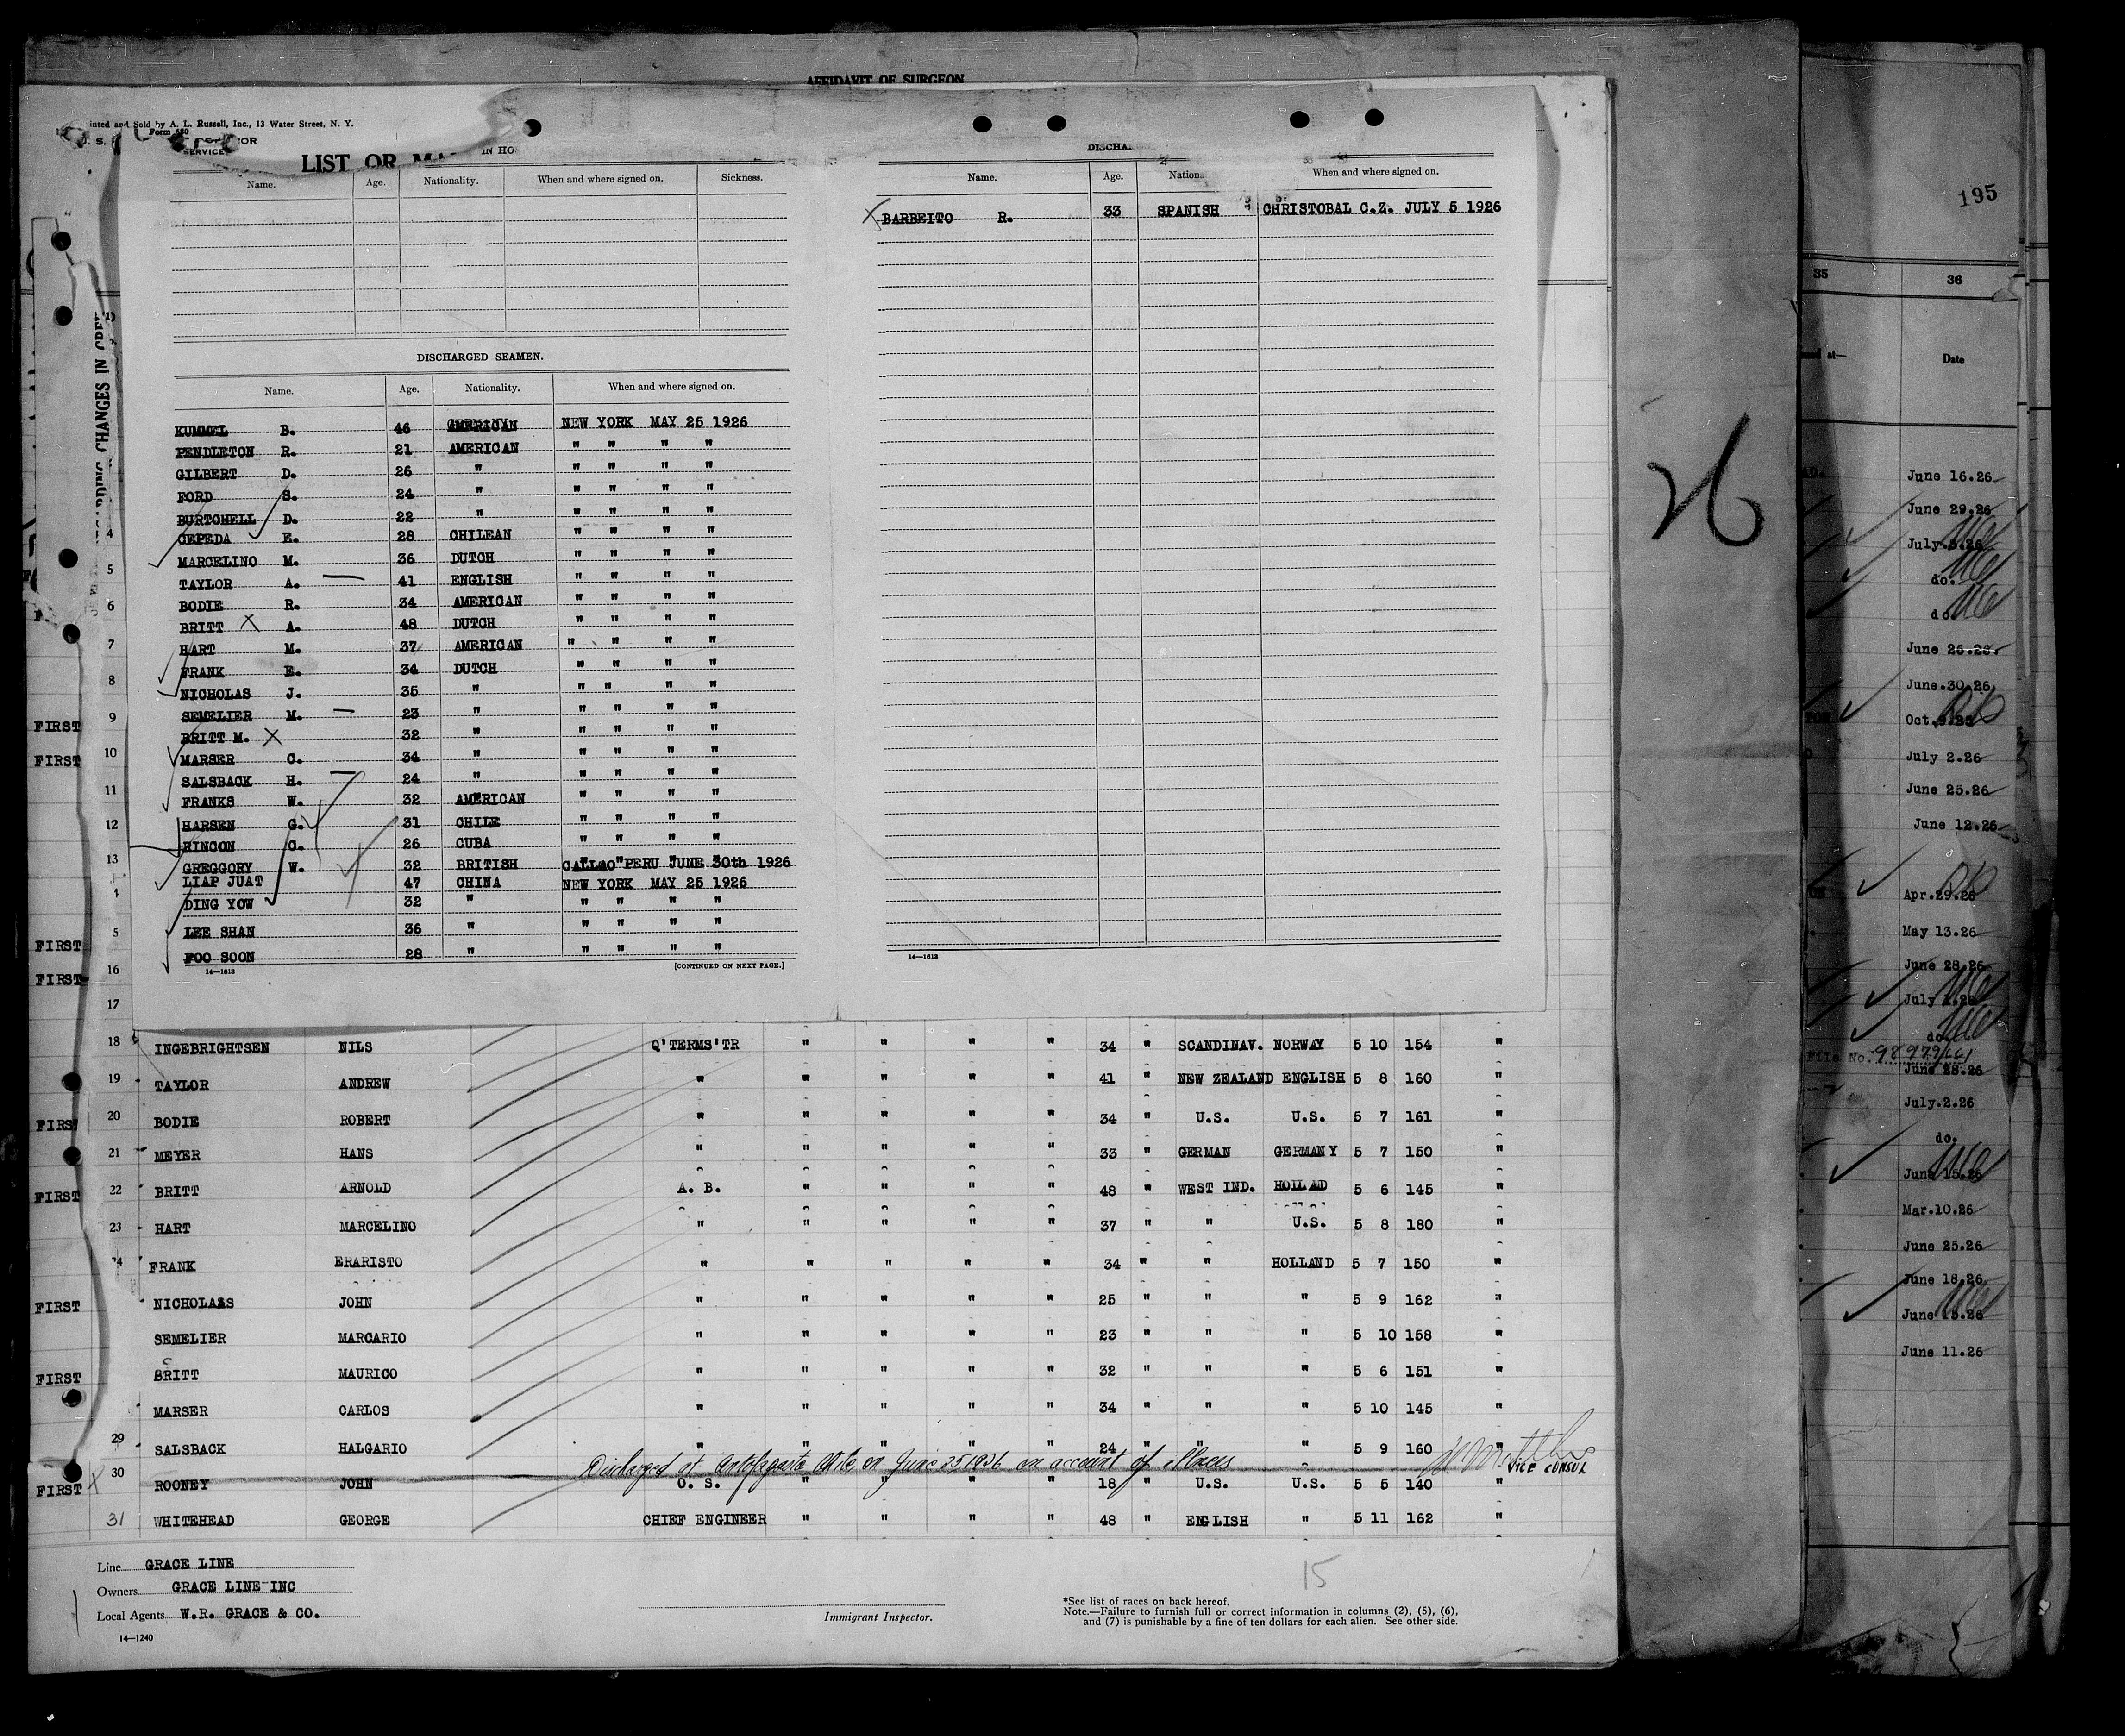 AFFIDAVIT OF SURGEON
Printed and Sold by A. L. Russell, Inc., 13 Water Street, N. Y.
Form 680
LIST OR
IN HO
Name. Age. Nationality. When and where signed on. Sickness.
DISCHARGED SEAMEN.
Name. Age. Nationality. When and where signed on.
KUMMEL B. 46 NEW YORK MAY 25 1926
PENDLETON R. 21 AMERICAN " " " "
GILBERT D. 26 " " " " "
FORD S. 24 " " " " "
BURTCHELL D. 22 " " " " "
CEPEDA E. 28 CHILEAN " " " "
MARCELINO M. 36 DUTCH " " " "
TAYLOR A. 41 ENGLISH " " " "
BODIE R. 34 AMERICAN " " " "
BRITT A. 48 DUTCH " " " "
HART M. 37 AMERICAN " " " "
FRANK E. 34 DUTCH " " " "
NICHOLAS J. 35 " " " " "
SEMELIER M. 23 " " " " "
BRITT M. 32 " " " " "
MARSER C. 34 " " " " "
SALSBACK H. 24 " " " " "
FRANKS W. 32 AMERICAN " " " "
HARSEN G. 31 CHILE " " " "
RINCON C. 26 CUBA " " " "
GREGGORY W. 32 BRITISH CALLAO PERU JUNE 30th 1926
LIAP JUAT 47 CHINA NEW YORK MAY 25 1926
DING YOW 32 " " " " "
LEE SHAN 36 " " " " "
FOO SOON 28 " " " " "
14—1613 [CONTINUED ON NEXT PAGE.]
DISCHA
Name. Age. Nationa When and where signed on.
BARBEITO R. 33 SPANISH CHRISTOBAL C.Z. JULY 5 1926
14—1613
CHANGES IN CREW
4
5
6
7
8
FIRST 9
FIRST 10
11
12
13
FIRST 5
FIRST 16
17
18 INGEBRIGHTSEN NILS Q'TERMS'TR " " " " 34 " SCANDINAV. NORWAY 5 10 154
19 TAYLOR ANDREW " " " " " 41 " NEW ZEALAND ENGLISH 5 8 160 "
FIRST 20 BODIE ROBERT " " " " " 34 " U.S. U.S. 5 7 161 "
21 MEYER HANS " " " " " 33 " GERMAN GERMANY 5 7 150 "
FIRST 22 BRITT ARNOLD A. B. " " " " 48 " WEST IND. HOLLAD 5 6 145 "
23 HART MARCELINO " " " " " 37 " " U.S. 5 8 180 "
24 FRANK ERARISTO " " " " " 34 " " HOLLAND 5 7 150 "
FIRST NICHOLAS JOHN " " " " " 25 " " " 5 9 162 "
SEMELIER MARCARIO " " " " " 23 " " " 5 10 158 "
FIRST BRITT MAURICO " " " " " 32 " " " 5 6 151 "
MARSER CARLOS " " " " " 34 " " " 5 10 145 "
29 SALSBACK HALGARIO " " " " " 24 " " " 5 9 160 "
Discharged at Antofagasta Chile on June 25 1926 on account of illness
VICE CONSUL
FIRST 30 ROONEY JOHN O. S. " " " " 18 " U.S. U.S. 5 5 140 "
31 WHITEHEAD GEORGE CHIEF ENGINEER " " " " 48 " ENGLISH " 5 11 162 "
Line GRACE LINE
Owners GRACE LINE INC
Local Agents W.R. GRACE & CO.
14—1240
Immigrant Inspector.
15
*See list of races on back hereof.
Note.—Failure to furnish full or correct information in columns (2), (5), (6),
and (7) is punishable by a fine of ten dollars for each alien. See other side.
26
195
35 36
at— Date
June 16.26
June 29.26
July.5.26
do.
do.
June 26.26.
June.30.26
Oct.9.25
July 2.26
June 25.26
June 12.26
Apr.29.26
May 13.26
June 28.26
July 1.26
do
File No. 98979/661
June 28.26
July.2.26
do.
June 15.26
Mar.10.26
June 25.26
June 18.26
June 15.26
June 11.26